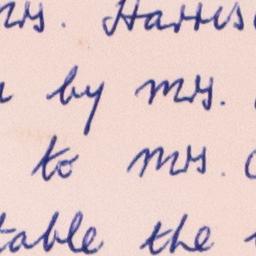 Mrs. Harris
by Mrs.
to Mrs.
table the